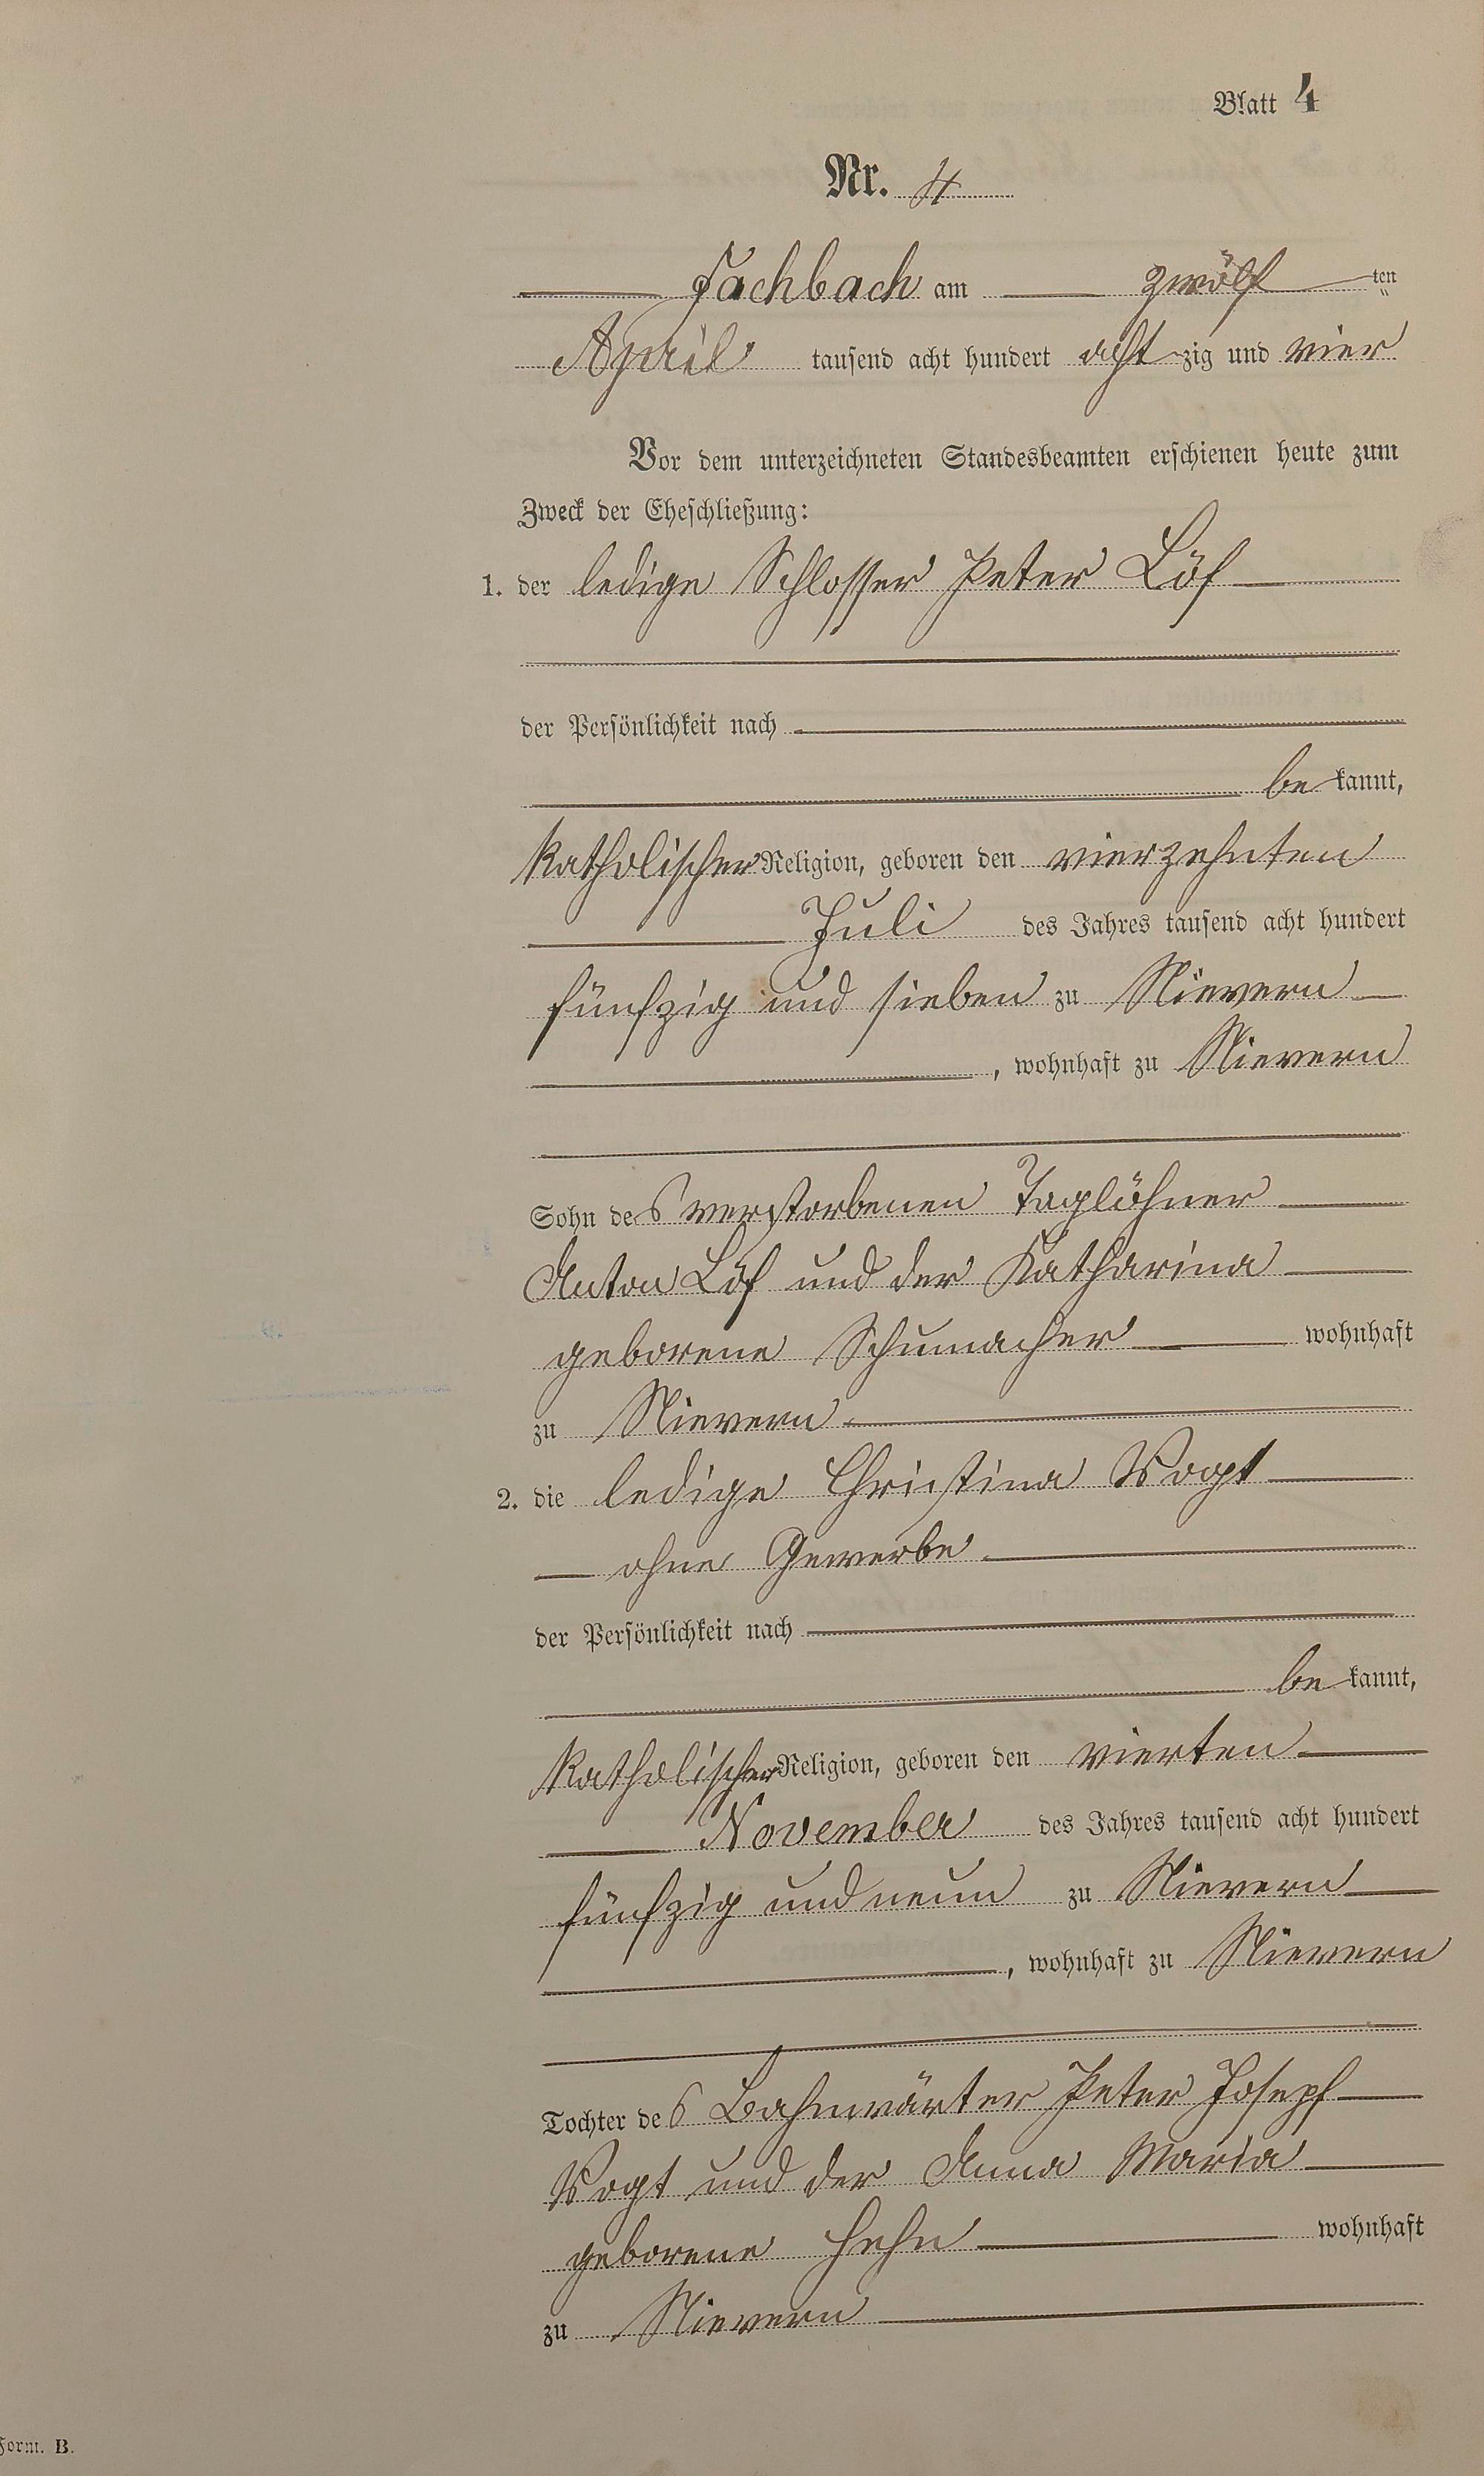 Blatt 4
Nr. 4
Fachbach am zwölf ten
April tausend acht hundert acht zig und vier
Vor dem unterzeichneten Standesbeamten erschienen heute zum
Zweck der Eheschließung:
1. der ledige Schlosser Peter Löf
der Persönlichkeit nach
be kannt,
katholischer Religion, geboren den vierzehnten
Juli des Jahres tausend acht hundert
fünfzig und sieben zu Nievern
, wohnhaft zu Nievern
Sohn des verstorbenen Taglöhner
Anton Löf und der Katharina
geborene Schumacher wohnhaft
zu Nievern
2. die ledige Christina Vogt
ohne Gewerbe
der Persönlichkeit nach
be kannt,
katholischer Religion, geboren den vierten
November des Jahres tausend acht hundert
fünfzig und neun zu Nievern
, wohnhaft zu Nievern
Tochter des Bahnwärter Peter Joseph
Vogt und der Anna Maria
geborene Hehn wohnhaft
zu Nievern
Form. B.